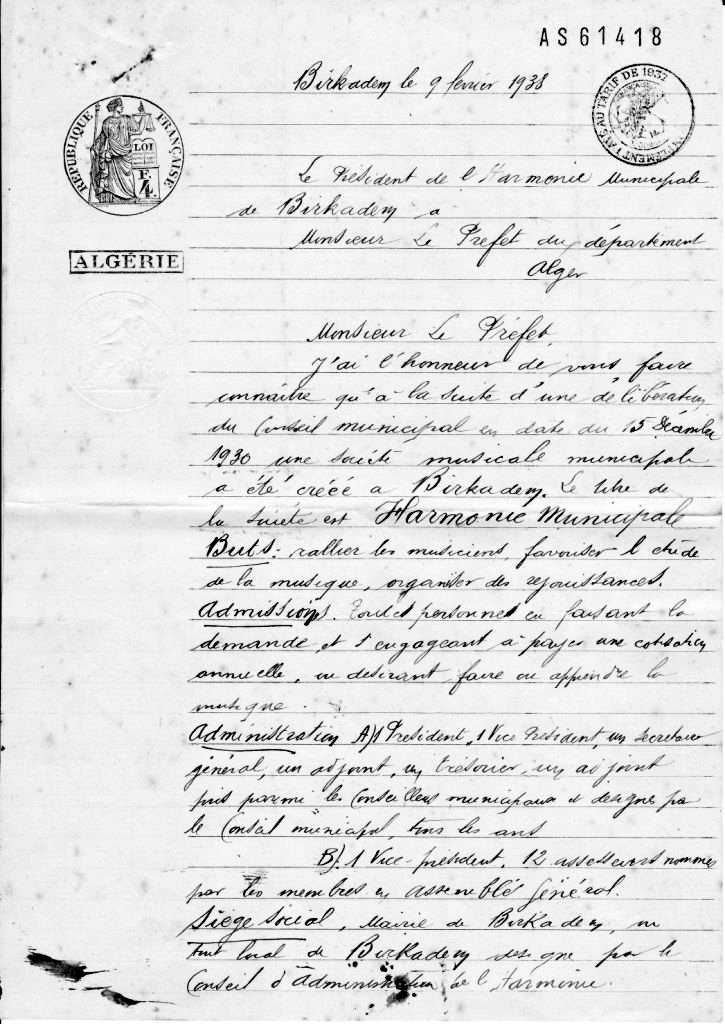 AS61418
Birkadem le 9 fevrier 1938
RÉPUBLIQUE FRANÇAISE
LOI
F. 4
AU TARIF DE 1937
Le Président de l'Harmonie Municipale
de Birkadem a
Monsieur Le Prefet du département
Alger
ALGÉRIE
Monsieur Le Préfet,
J'ai l'honneur de vous faire
connaître qu'à la suite d'une délibération
du Conseil municipal en date du 15 Décembre
1930 une société musicale municipale
a été créée a Birkadem. Le titre de
la Société est Harmonie Municipale
Buts: rallier les musiciens, favoriser l'étude
de la musique, organiser des rejouissances.
Admissions. en faisant la
demande, et s'engageant à payer une cotisation
annuelle, ou desirant faire ou apprendre la
musique.
Administration A) 1 President, 1 Vice President, un secretaire
général, un adjoint, un trésorier, un adjoint
pris parmi les Conseillers municipaux et designes par
le Conseil municipal, tous les ans
B) 1 Vice-président, 12 assesseurs nommes
par les membres en assemblé Général.
Siège Social, Mairie de Birkadem, ou
tout local de Birkadem designe par le
Conseil d'Administration de l'Harmonie.